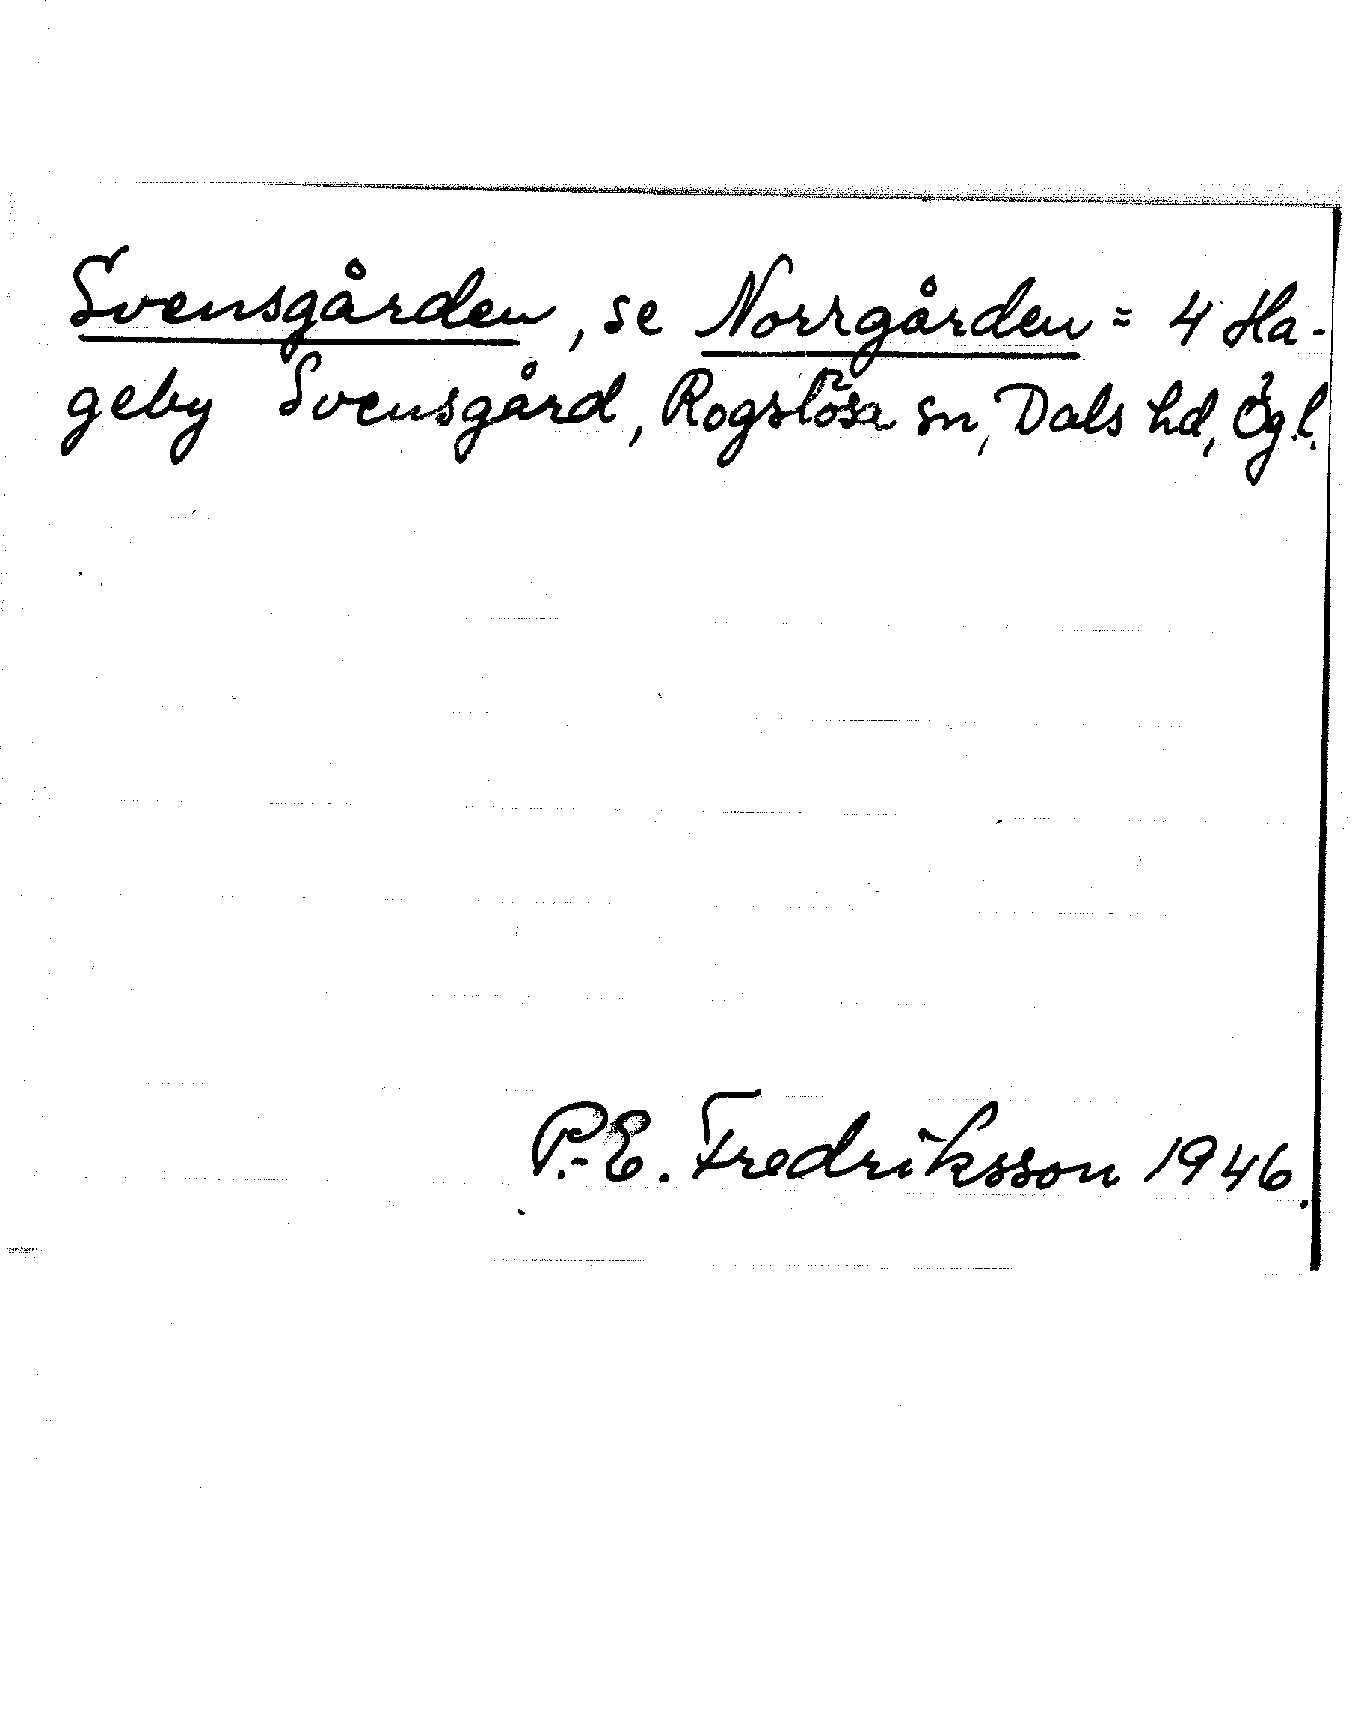 Svensgården, se Norrgården = 4 Ha-
geby Svensgård, Rogslösa sn, Dals hd, Ögl.
P.-E. Fredriksson 1946.